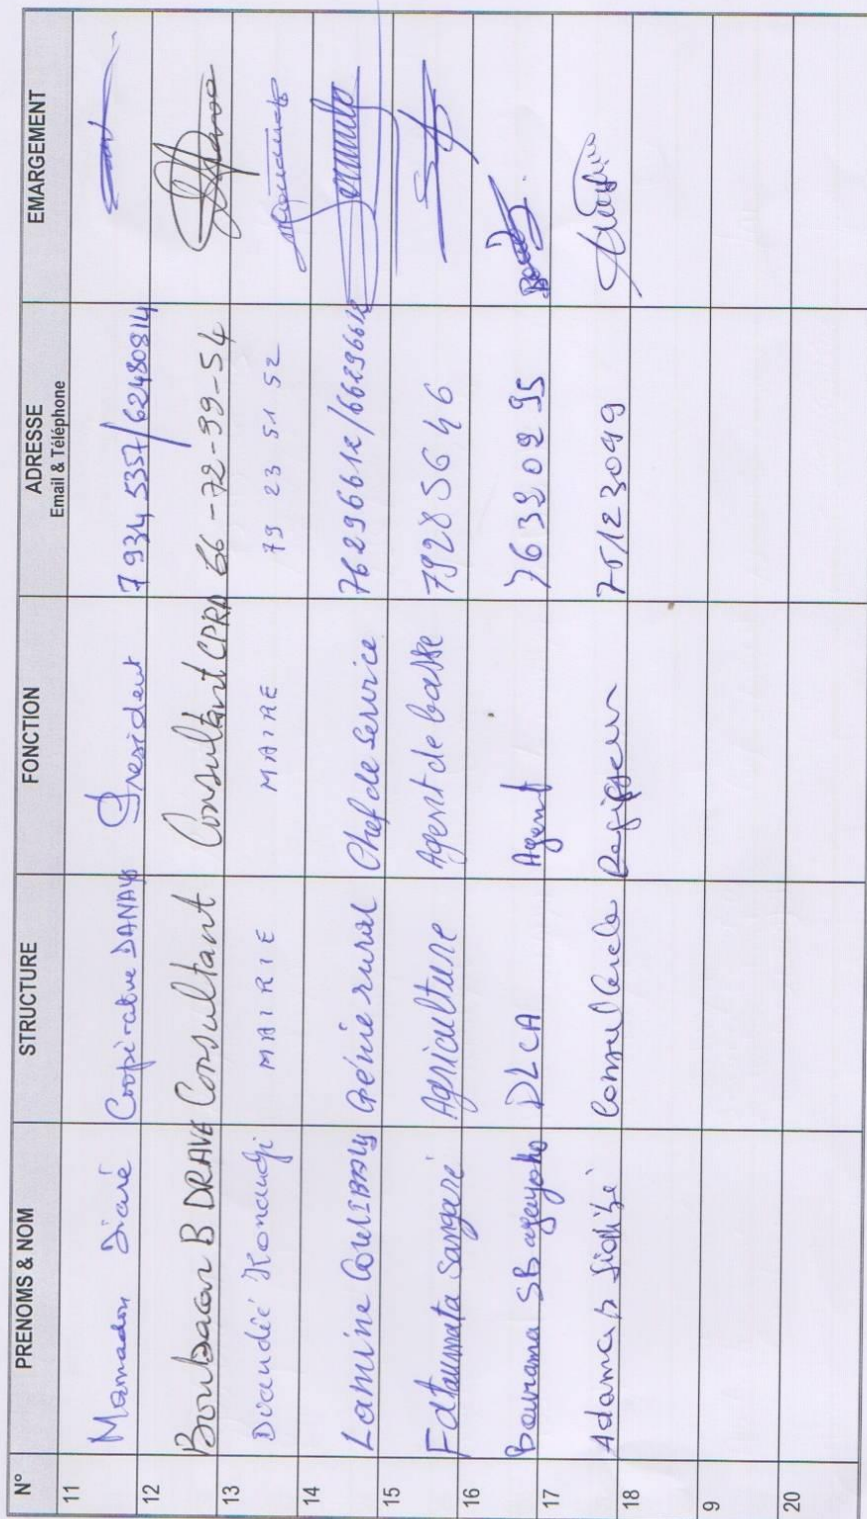 N° PRENOMS & NOM STRUCTURE FONCTION ADRESSE Email & Téléphone EMARGEMENT
11 Mamadou Diarié Coopérative DANAYA President 79345357/62480814
12 Boubacar B DRAVE Consultant Consultant CPRP 66-72-99-54
13 MAIRIE MAIRE 79 23 51 52
14 Lamine COULIBALY Génie rural Chef de Service 76296612/66296612
15 Fatoumata Sangaré Agriculture Agent de baske 79285646
16 Bourama SBagayoko DLCA Agent 76320295
17 Adama Conseil Cercle Regisseur 75123099
18
9
20